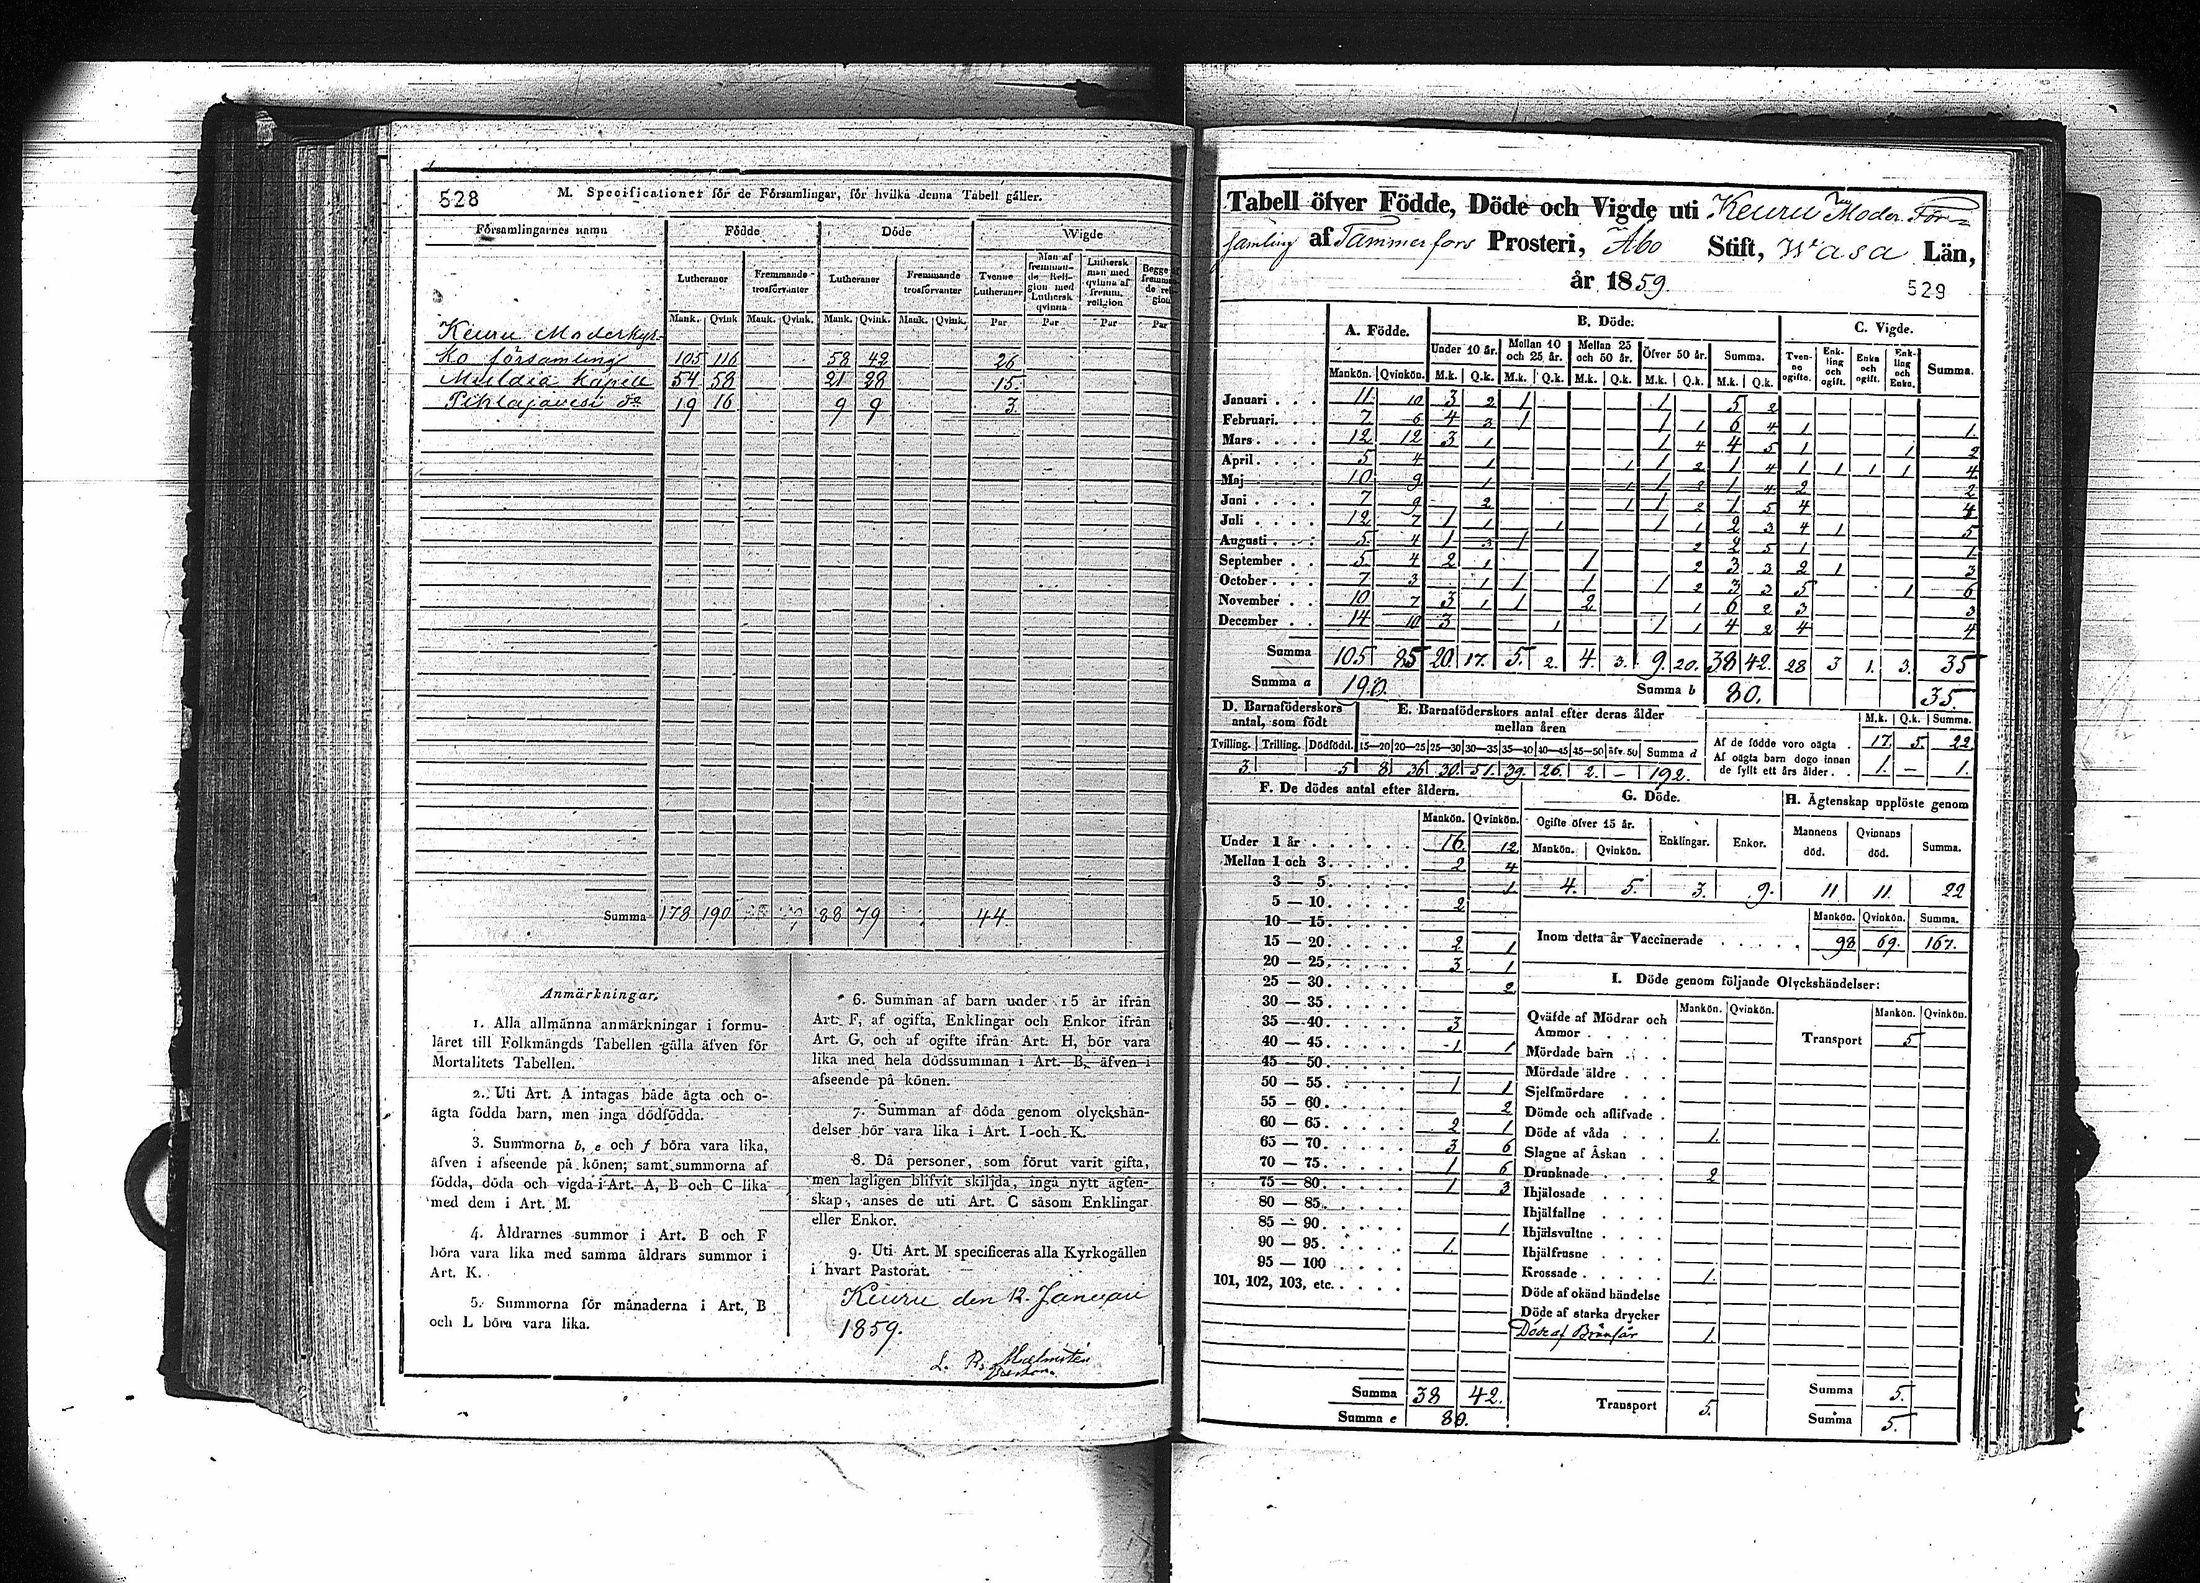 528
M. Specificationer för de Församlingar, för hvilka denna Tabell gäller.
Församlingarnes namn
Födde
Döde
Wigde
Lutheraner
Fremmande trosförvanter
Lutheraner
Fremmande trosförvanter
Tvenne Lutheraner
Man af fremmande Religion med Luthersk qvinna
Luthersk man med qvinna af fremm. religion
Begge af fremmande religion
Mank. Qvink. Mank. Qvink. Mank. Qvink. Mank. Qvink. Par Par Par Par
Keuru Moderkyr-
ko församling 105 116 58 42 26
Multia Kapell 54 58 21 28 15.
Pihlajavesi do 19 16 9 9 3.
Summa 178 190 88 79 44
Anmärkningar.
1. Alla allmänna anmärkningar i formu-
läret till Folkmängds Tabellen gälla äfven för
Mortalitets Tabellen.
2. Uti Art. A intagas både ägta och o-
ägta födda barn, men inga dödfödda.
3. Summorna b, e och f böra vara lika,
äfven i afseende på könen; samt summorna af
födda, döda och vigda i Art. A, B och C lika
med dem i Art. M.
4. Åldrarnes summor i Art. B och F
böra vara lika med samma åldrars summor i
Art. K.
5. Summorna för månaderna i Art. B
och L böra vara lika.
6. Summan af barn under 15 år ifrån
Art. F, af ogifta, Enklingar och Enkor ifrån
Art. G, och af ogifte ifrån Art. H, bör vara
lika med hela dödssumman i Art. B, äfven i
afseende på könen.
7. Summan af döda genom olyckshän-
delser bör vara lika i Art. I och K.
8. Då personer, som förut varit gifta,
men lagligen blifvit skiljda, ingå nytt ägten-
skap, anses de uti Art. C såsom Enklingar
eller Enkor.
9. Uti Art. M specificeras alla Kyrkogällen
i hvart Pastorat.
Keuru den 12. Januari
1859.
Tabell öfver Födde, Döde och Vigde uti Keuru Moder För-
samling af Tammerfors Prosteri, Åbo Stift, Wasa Län,
år 1859.
529
A. Födde.
B. Döde.
C. Vigde.
Under 10 år. Mellan 10 och 25 år. Mellan 25 och 50 år. Öfver 50 år. Summa.
Tvenne ogifte. Enkling och ogift. Enka och ogift. Enkling och Enka. Summa.
Mankön. Qvinkön. M.k. Q.k. M.k. Q.k. M.k. Q.k. M.k. Q.k. M.k. Q.k.
Januari 11 10 3 2 1 1 5 2
Februari 7 6 4 3 1 1 1 6 4 1 1.
Mars 12 12 3 1 1 4 4 5 1 1 2
April 5 4 1 1 1 2 1 4 1 1 1 1 4
Maj 10 9 1 1 1 2 1 4 2 2
Juni 7 9 2 1 1 2 1 5 4 4
Juli 12 7 1 1 1 1 1 2 3 4 1 5
Augusti 5 4 1 3 1 2 2 5 1 1
September 5 4 2 1 1 2 3 3 2 1 3
October 7 3 1 1 1 1 2 3 3 5 1 6
November 10 7 3 1 1 2 1 6 2 3 3
December 14 10 3 1 1 1 4 2 4 4
Summa 105 85 20. 17. 5. 2. 4. 3. 9. 20. 38 42. 28 3 1. 3. 35
Summa a 190. Summa b 80. 35.
D. Barnaföderskors antal, som födt
E. Barnaföderskors antal efter deras ålder mellan åren
M.k. Q.k. Summa.
Tvilling. Trilling. Dödfödd. 15—20 20—25 25—30 30—35 35—40 40—45 45—50 öfv. 50 Summa d
3. 5 8 36 30. 51. 39. 26. 2. — 192.
Af de födde voro oägta 17. 5. 22
Af oägta barn dogo innan
de fyllt ett års ålder 1. — 1.
F. De dödes antal efter åldern.
Mankön. Qvinkön.
Under 1 år 16. 12
Mellan 1 och 3 2 4
3 — 5 1
5 — 10 2
10 — 15
15 — 20 2 1
20 — 25 3 1
25 — 30 2
30 — 35
35 — 40 3
40 — 45 1 1
45 — 50
50 — 55 1 1
55 — 60 2
60 — 65 2 1
65 — 70 3 6
70 — 75 1 6
75 — 80 1 3
80 — 85
85 — 90 1
90 — 95 1.
95 — 100
101, 102, 103, etc.
Summa 38 42.
Summa e 80.
G. Döde.
Ogifte öfver 15 år. Enklingar. Enkor.
Mankön. Qvinkön.
4. 5. 3. 9.
H. Ägtenskap upplöste genom
Mannens död. Qvinnans död. Summa.
11 11. 22
Mankön. Qvinkön. Summa.
Inom detta år Vaccinerade 98 69. 167.
I. Döde genom följande Olyckshändelser:
Mankön. Qvinkön. Mankön. Qvinkön.
Qväfde af Mödrar och
Ammor
Transport 5
Mördade barn
Mördade äldre
Sjelfmördare
Dömde och aflifvade
Döde af våda 1.
Slagne af Åskan
Drunknade 2
Ihjälosade
Ihjälfallne
Ihjälsvultne
Ihjälfrusne
Krossade 1.
Döde af okänd händelse
Döde af starka drycker
Döde af Brännsår 1.
Transport 5.
Summa 5.
Summa 5.